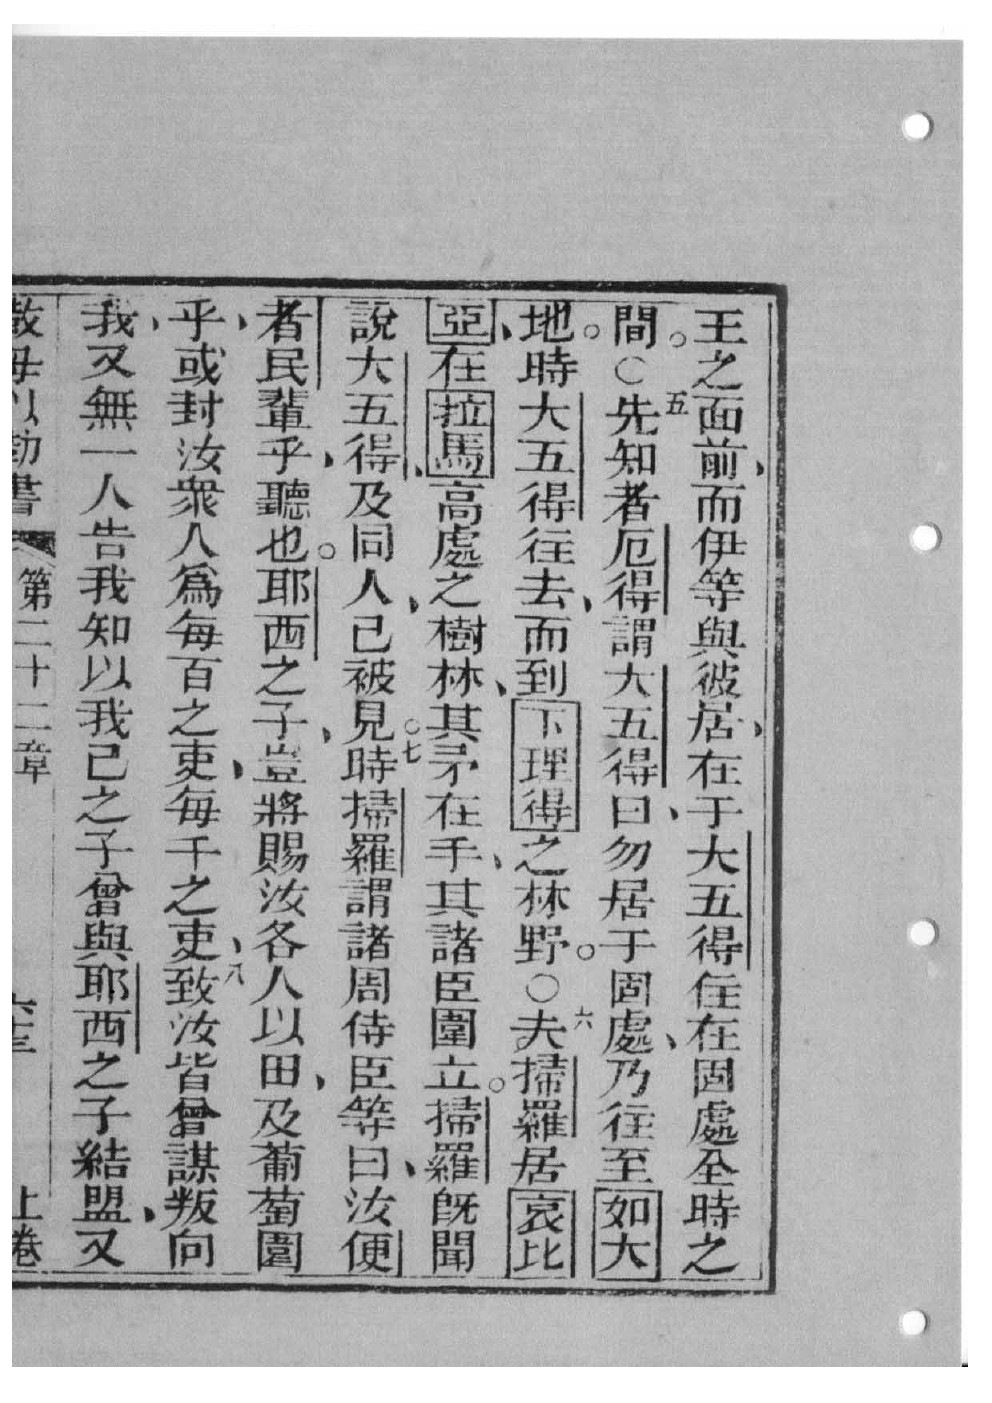 王之面前、而伊等與彼居、在于大五得住在固處全時之
間。○五先知者厄得謂大五得曰、勿居于固處、乃往至如大
地。時大五得往去、而到下理得之林野。○六夫掃羅居哀比
亞、在拉馬高處之樹林、其矛在手、其諸臣圍立。掃羅旣聞
說大五得、及同人、已被見。七時掃羅謂諸周侍臣等曰、汝便
者民輩乎、聽也。耶西之子、豈將賜汝各人以田、及葡萄園
乎、或封汝衆人爲每百之吏、每千之吏、八致汝皆曾謀叛向
我、又無一人告我知以我己之子曾與耶西之子結盟、又
第二十二章 上卷